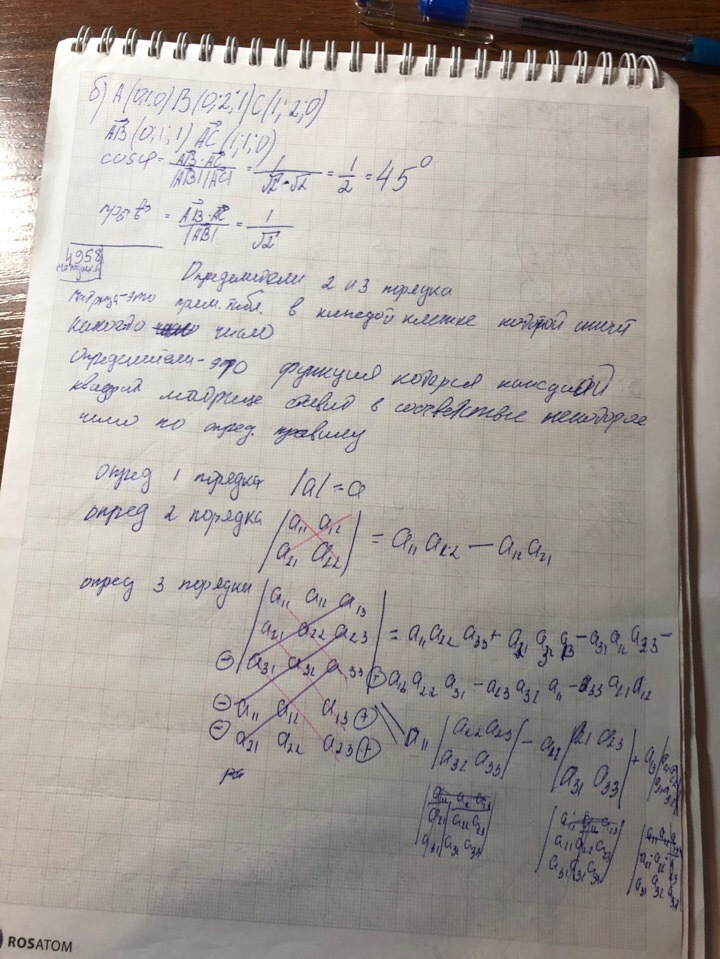 б) A(0;1;0) B(0;2;1) C(1;2;0)
AB(0;1;1) AC(1;1;0)
cosφ = AB·AC / |AB||AC| = 1/√2·√2 = 1/2 = 45°
= AB·AC / |AB| = 1/√2
4958
Определители 2 и 3 порядка
матрица-это прям. табл. в каждой клетке которой стоит
какого число
Определители-это функция которая каждой
квадрат. матрице ставит в соответствие некоторое
число по опред. правилу
опред 1 порядка |a| = a
опред 2 порядка |a11 a12
a21 a22| = a11 a22 − a12 a21
опред 3 порядка |a11 a12 a13
a21 a22 a23
⊖ a31 a32 a33 ⊕| = a11 a22 a33 + a21 a32 a13 − a31 a12 a23 −
a13 a22 a31 − a23 a32 a11 − a33 a21 a12
⊖ a11 a12 a13 ⊕
⊖ a21 a22 a23 ⊕
a11 |a22 a23
a32 a33| − a12 |a21 a23
a31 a33| + a13
ROSATOM